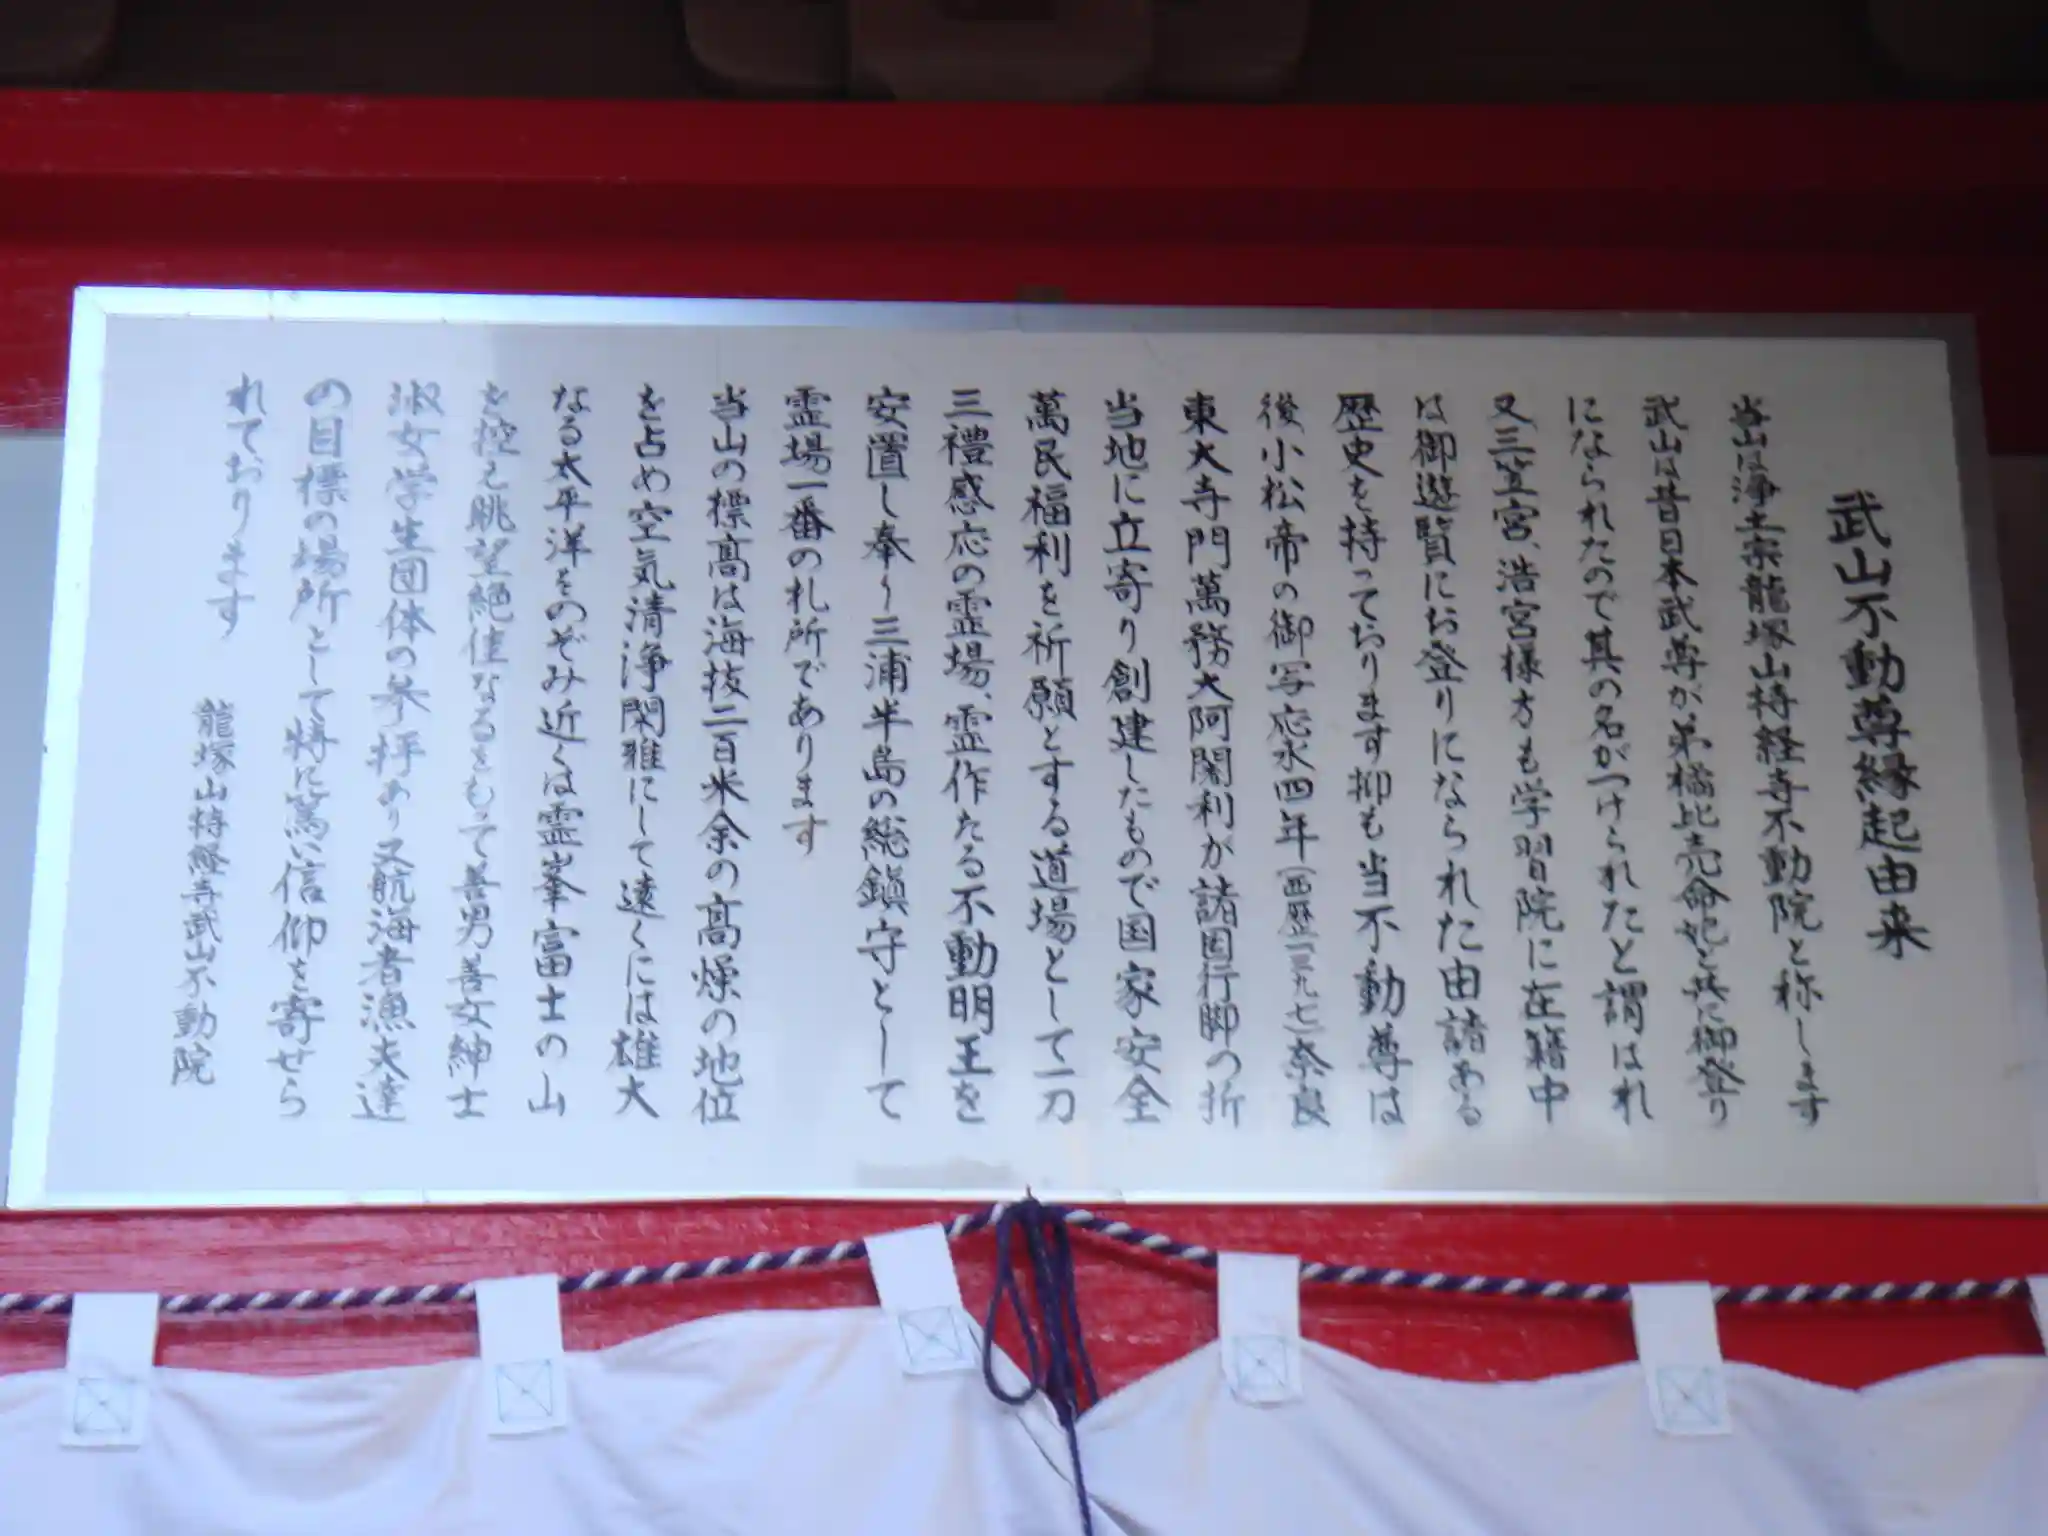 武山不動尊縁起由来
当山は浄土宗龍塚山持経寺不動院と称します
武山は昔日本武尊が弟橘比売命妃と共に御登り
になられたので其の名がつけられたと謂はれ
又三笠宮、浩宮様方も学習院に在籍中
は御遊覧にお登りになられた由諸ある
歴史を持っております抑も当不動尊は
後小松帝の御写応永四年(西歴一三九七)奈良
東大寺門萬務大阿闍利が諸国行脚の折
当地に立寄り創建したもので国家安全
萬民福利を祈願とする道場として一刀
三禮感応の霊場、霊作たる不動明王を
安置し奉り三浦半島の総鎮守として
霊場一番の札所であります
当山の標高は海抜二百米余の高燥の地位
を占め空気清浄閑雅にして遠くには雄大
なる太平洋をのぞみ近くは霊峯富士の山
を控え眺望絶佳なるをもって善男善女紳士
淑女学生団体の参拝あり又航海者漁夫達
の目標の場所として特に篤い信仰を寄せら
れております
龍塚山持経寺武山不動院